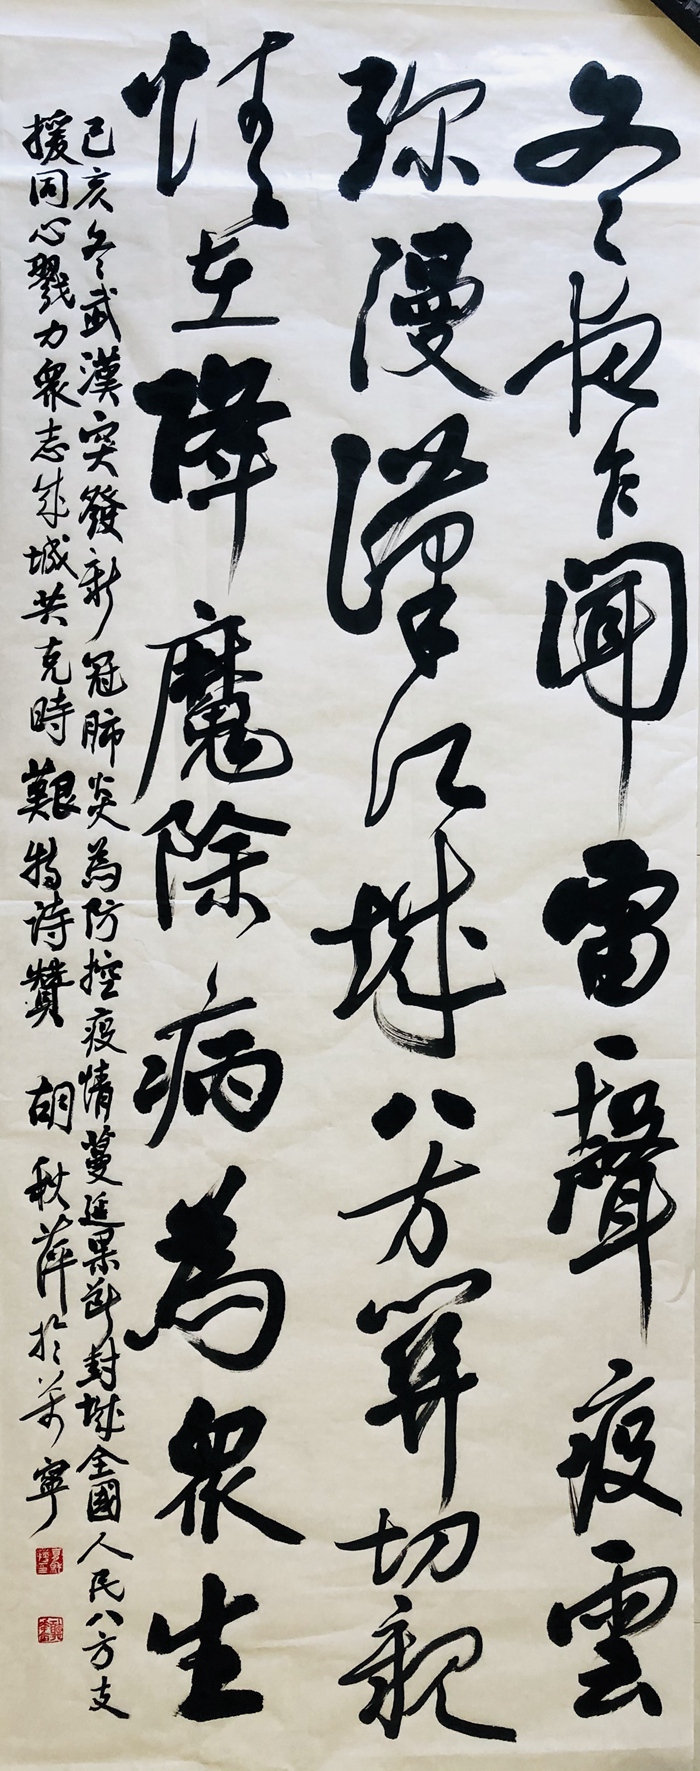 冬夜乍聞雷一聲疫雲
弥漫漢江城八方關切親
情在降魔除病為衆生
己亥冬武漢突發新冠肺炎為防控疫情蔓延果斷封城全國人民八方支
援同心戮力衆志成城共克時艱特诗贊 胡秋萍於萬寧